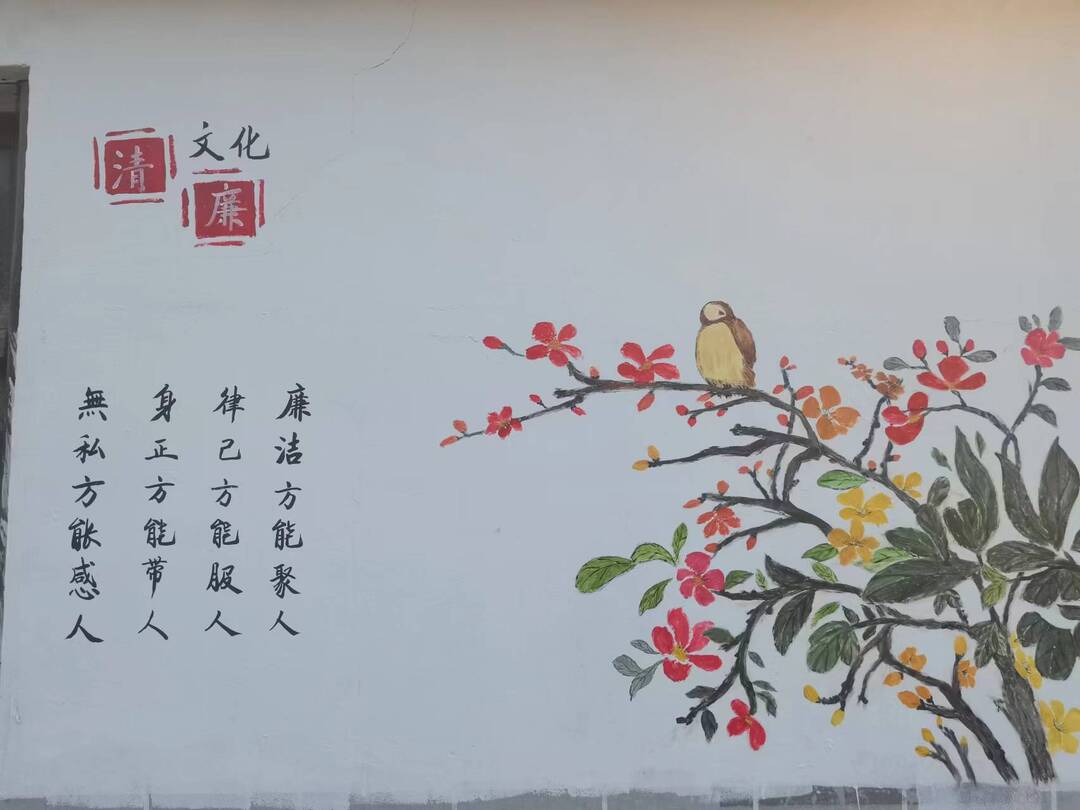 清廉
文化
廉洁方能聚人
律己方能服人
身正方能带人
無私方能感人